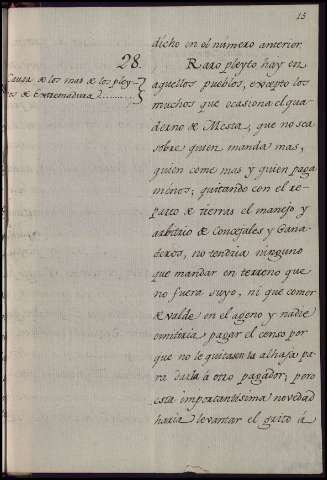 15
dicho en el número anterior.
28.
Causa de los mas de los pley-
tos de Extremadura
Raro pleyto hay en
aquellos pueblos, excepto los
muchos que ocasiona el qua-
derno de Mesta, que no sea
sobre quien manda mas,
quien come mas y quien paga
ménos; quitando con el re-
parto de tierras el manejo y
arbitrio de Concejales y Gana-
deros, no tendria ninguno
que mandar en terreno que
no fuera suyo, ni que comer
de valde en el ageno y nadie
omitiria pagar el censo por
que no le quitasen la alhaja pa-
ra darla á otro pagador; pero
esta importantísima novedad
haria levantar el grito á